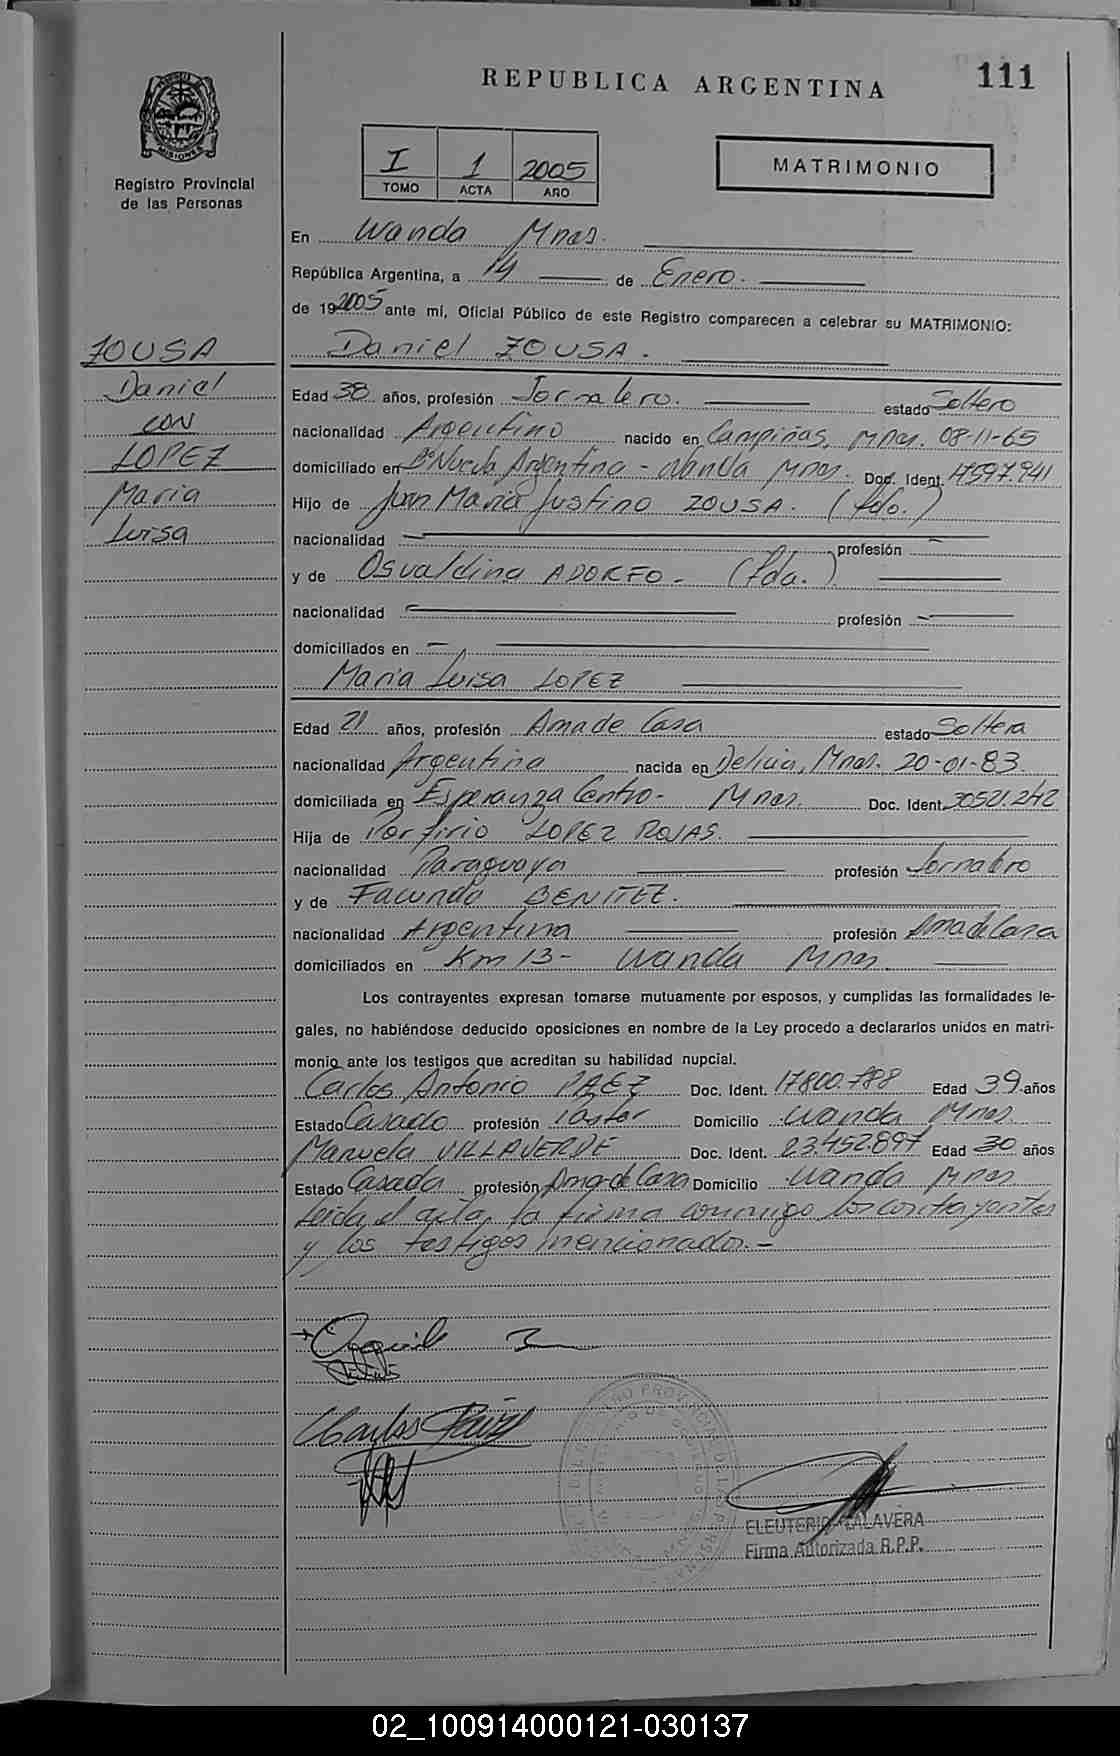 REPUBLICA ARGENTINA
111
MISIONES
Registro Provincial
de las Personas
I 1 2005
TOMO ACTA AÑO
MATRIMONIO
En Wanda Mnes.
República Argentina, a 14 de Enero.
de 192005 ante mí, Oficial Público de este Registro comparecen a celebrar su MATRIMONIO:
ZOUSA
Daniel
CON
LOPEZ
Maria
Luisa
Daniel ZOUSA.
Edad 38 años, profesión Jornalero. estado Soltero
nacionalidad Argentino nacido en Campiñas, Mnes. 08-11-65
domiciliado en Bº Nueva Argentina - Wanda Mnes. Doc. Ident. 17597.941
Hijo de Juan Maria Justino ZOUSA. (fdo.)
nacionalidad - profesión -
y de Osvaldina ADORFO - (fda.)
nacionalidad - profesión -
domiciliados en -
Maria Luisa LOPEZ
Edad 21 años, profesión Ama de Casa estado Soltera
nacionalidad Argentina nacida en Delicia, Mnes. 20-01-83.
domiciliada en Esperanza Centro - Mnes. Doc. Ident. 30521.242
Hija de Porfirio LOPEZ ROJAS.
nacionalidad Paraguaya profesión Jornalero
y de Facunda BENITEZ.
nacionalidad Argentina profesión Ama de Casa
domiciliados en Km 13 - Wanda Mnes.
Los contrayentes expresan tomarse mutuamente por esposos, y cumplidas las formalidades le-
gales, no habiéndose deducido oposiciones en nombre de la Ley procedo a declararlos unidos en matri-
monio ante los testigos que acreditan su habilidad nupcial.
Carlos Antonio PAEZ Doc. Ident. 17800.788 Edad 39 años
Estado Casado profesión Pastor Domicilio Wanda Mnes.
Manuela VILLAVERDE Doc. Ident. 23.452.897 Edad 30 años
Estado Casada profesión Ama de Casa Domicilio Wanda Mnes
Leida el acta, la firma conmigo los contrayentes
y los testigos mencionados.-
Carlos Paez
ELEUTERIO TALAVERA
Firma Autorizada R.P.P.
02_100914000121-030137